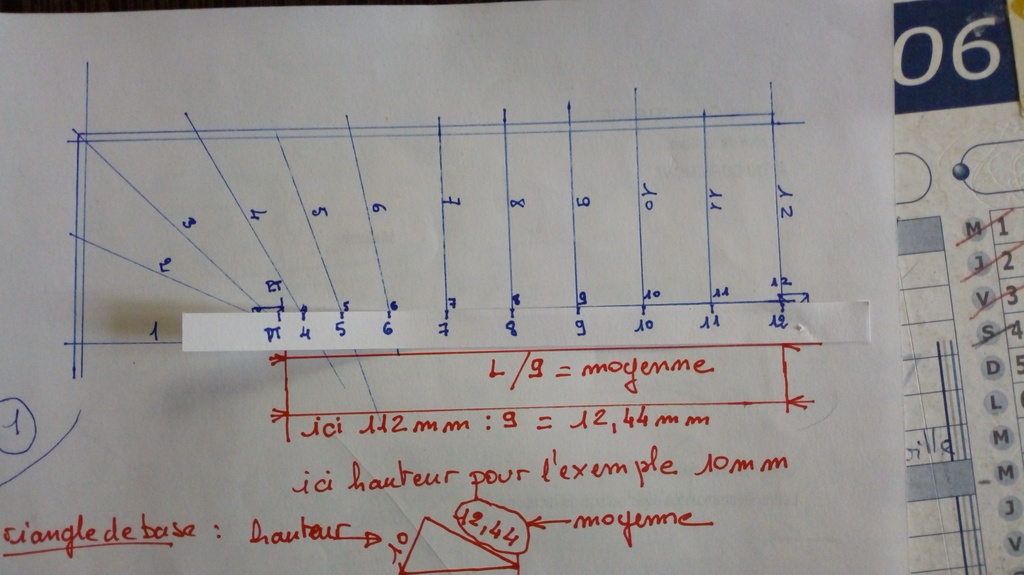 06
1
2
3
4
5
6
7
8
9
10
11
12
4
5
6
7
8
9
10
11
12
4
5
6
7
8
9
10
11
12
L/9 = moyenne
ici 112 mm : 9 = 12,44 mm
ici hauteur pour l'exemple 10mm
12,44
moyenne
riangle de base : hauteur
10
1
M 1
J 2
V 3
S 4
D 5
L
M
M
J
V